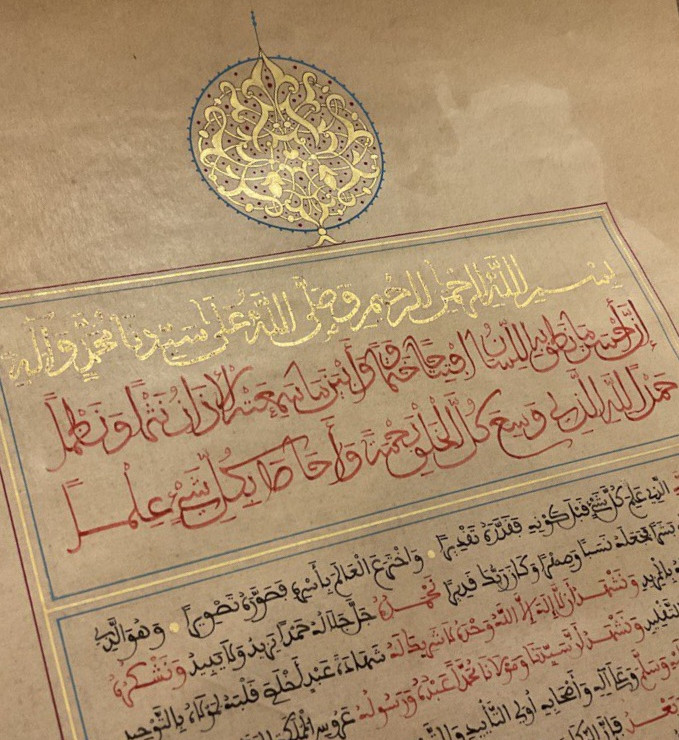 بسم الله الرحمن الرحيم وصلى الله على سيدنا محمد وآله
إن أحسن ما نطق به اللسان افتتاحا وختما وأيمن ما سمعته الآذان نثرا ونظما
حمد الله الذي وسع كل الخلق وأحاط بكل شيء علما
الذي علم كل شيء قبل كونه فقدره تقديرا • واخترع العالم بأسره فصوره تصويرا • وهو الذي
بشرا فجعله نسبا وصهرا وكان ربك قديرا نحمده جل جلاله حمدا يزيد ولا يبيد ونشكره
بالمزيد ونشهد أن لا إله إلا الله وحده لا شريك له شهادة عبد أخلص قلبه لمولاه بالتوحيد
التقليد ونشهد أن سيدنا ومولانا محمدا عبده ورسوله عروس المملكة
وسلم وعلى آله وأصحابه أولي التأييد
وبعد فإن